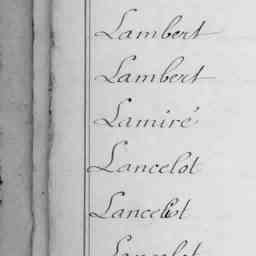 Lambert
Lambert
Lamiré
Lancelot
Lancelot
Lancelot